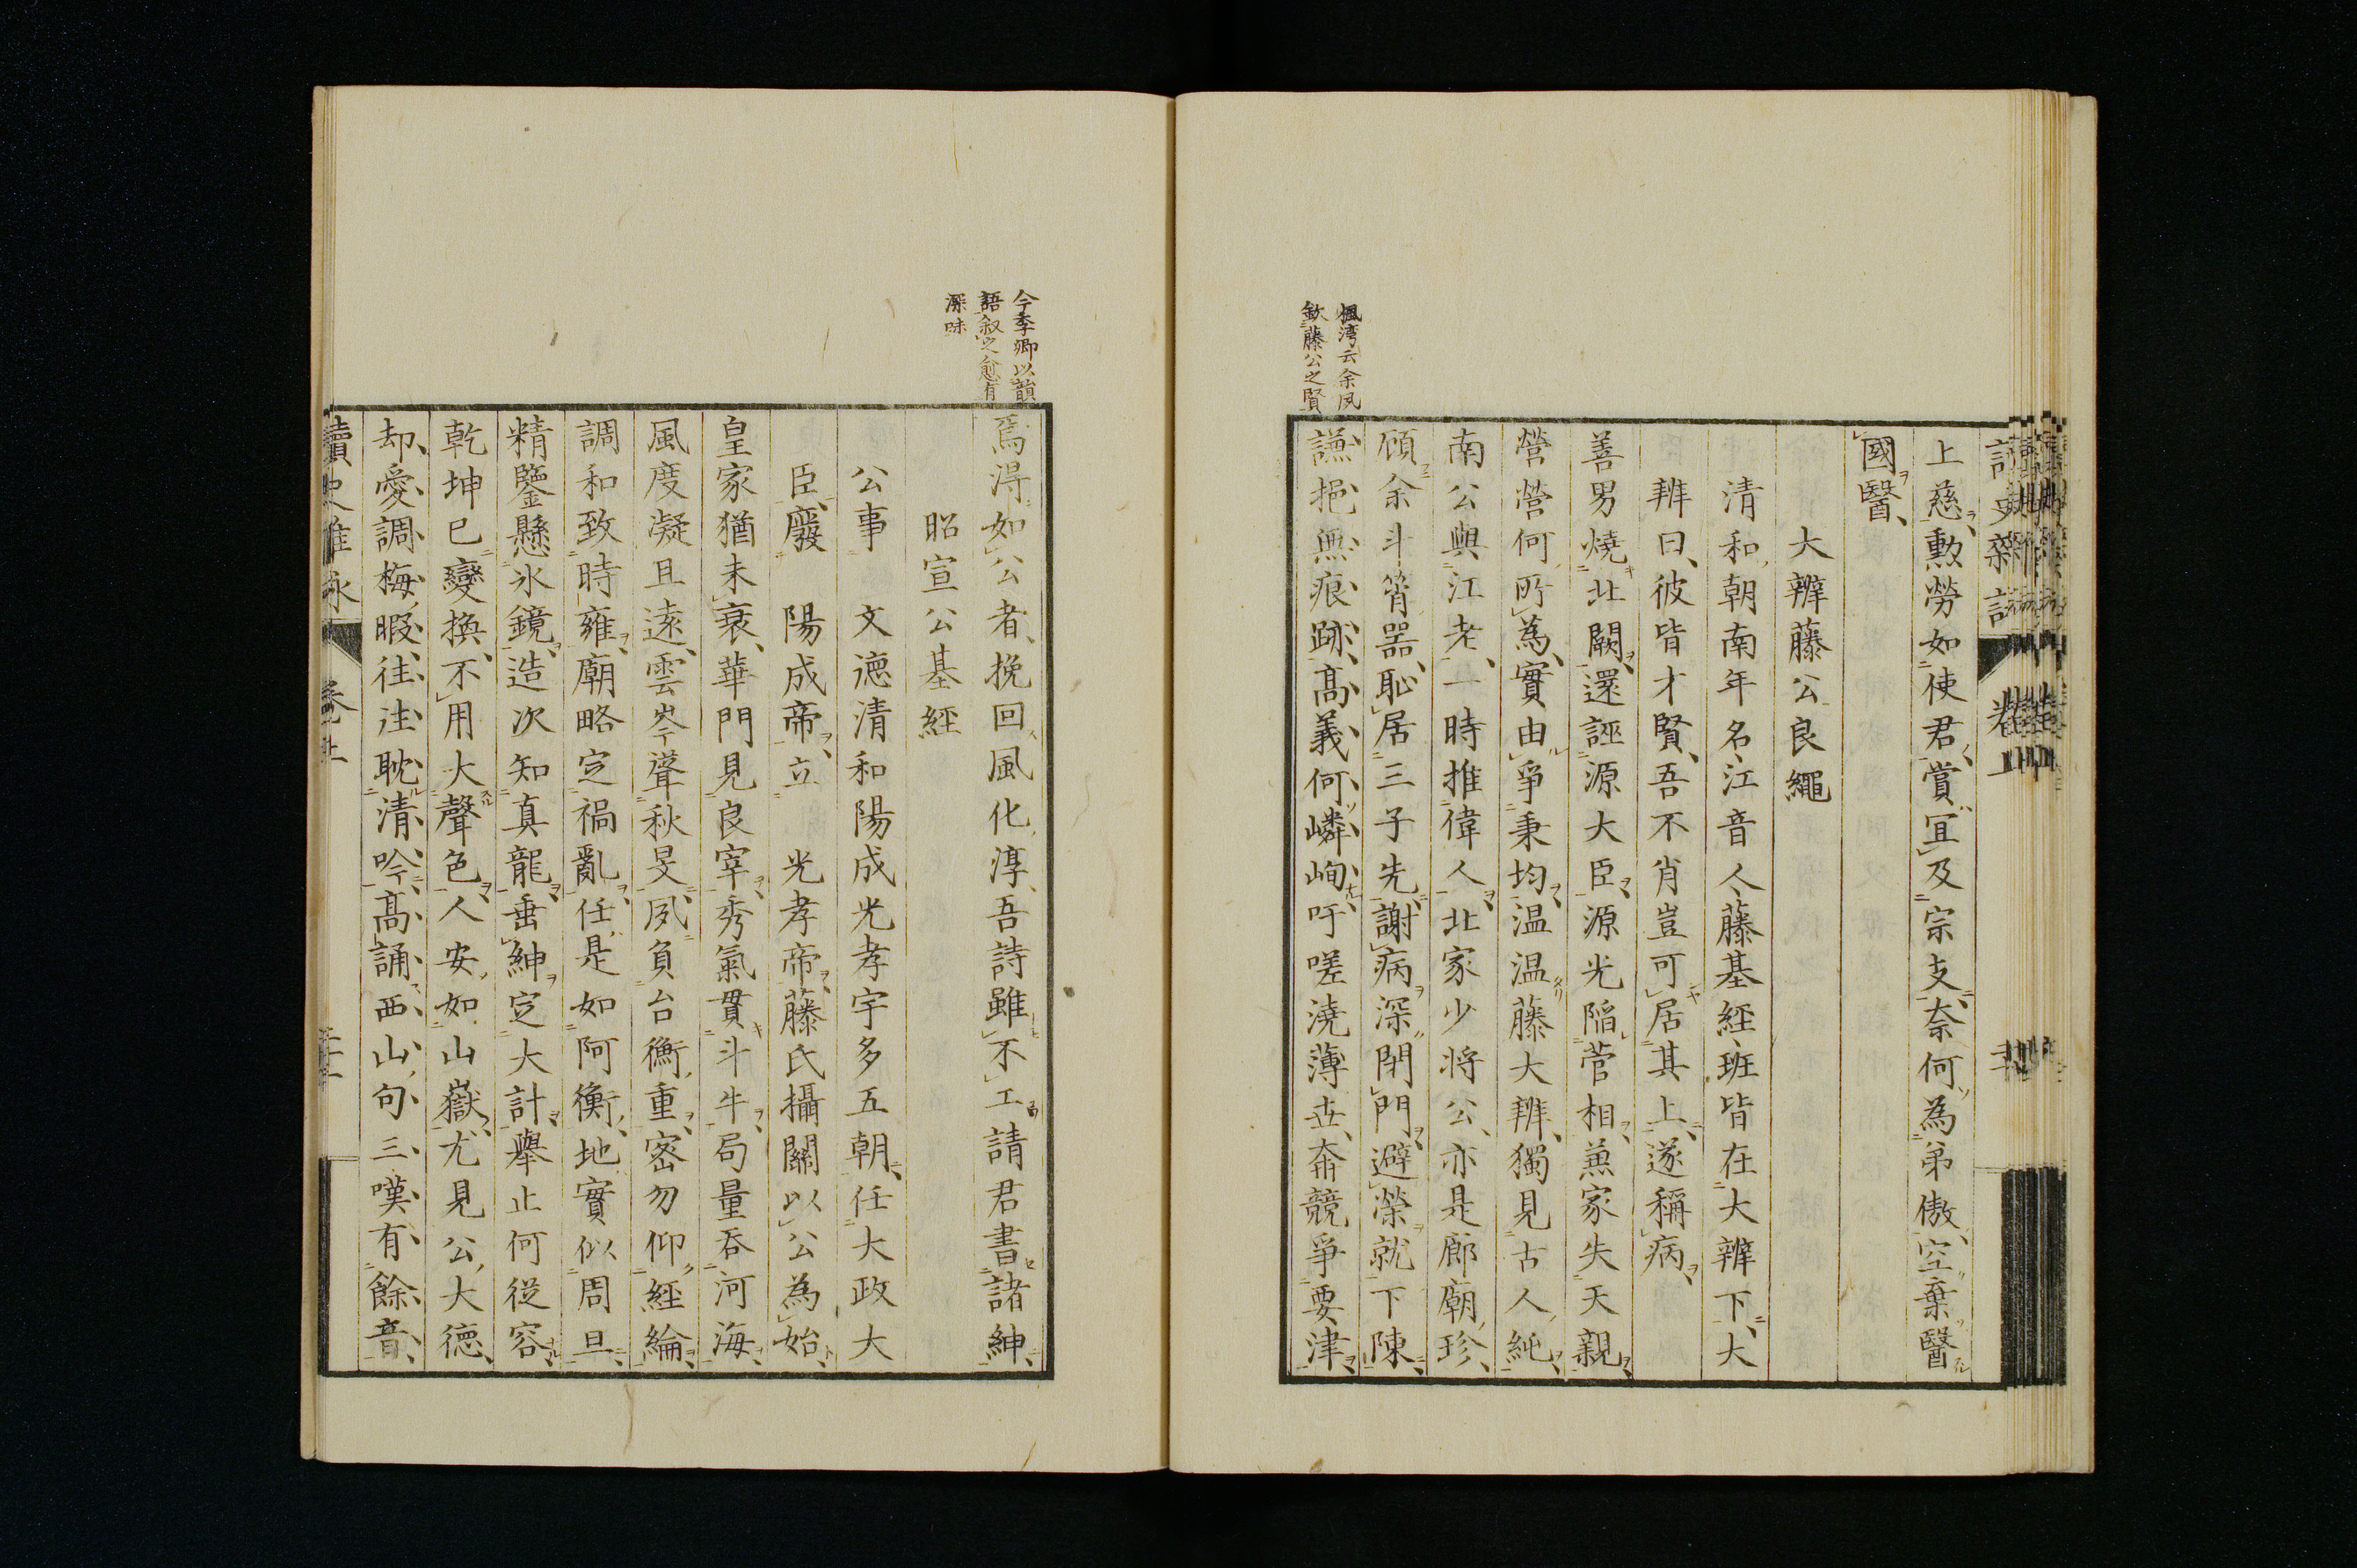 上慈勲勞如使君賞宜及宗支奈何為弟傲空棄醫
國醫
大辨藤公良繩
清和朝南年名江音人藤基經班皆在大辨下大
辨曰彼皆才賢吾不肖豈可居其上遂稱病
善男燒北闕還誣源大臣源光陷菅相兼家失天親
營營何所為實由爭秉均温温藤大辨獨見古人純
南公與江老一時推偉人北家少将公亦是廊廟珍
楓湾云余夙
欽藤公之賢
顧余斗筲器恥居三子先謝病深閉門避榮就下陳
謙挹無痕跡高義何嶙峋吁嗟澆薄世奔競爭要津
今季卿以韻
語叙之愈有
深味
焉得如公者挽回風化淳吾詩雖不工請君書諸紳
昭宣公基經
公事 文徳清和陽成光孝宇多五朝任大政大
臣廢 陽成帝立 光孝帝藤氏攝關以公為始
皇家猶未衰華門見良宰秀氣貫斗牛局量吞河海
風度凝且遠雲岑聳秋旻夙負台衡重密勿仰經綸
調和致時雍廟略定禍亂任是如阿衡地實似周旦
精鑒懸氷鏡造次知真龍垂紳定大計舉止何從容
乾坤已變換不用大聲色人安如山嶽尤見公大徳
却愛調梅暇往往耽清吟高誦西山句三嘆有餘音
讀史雜詠 卷上